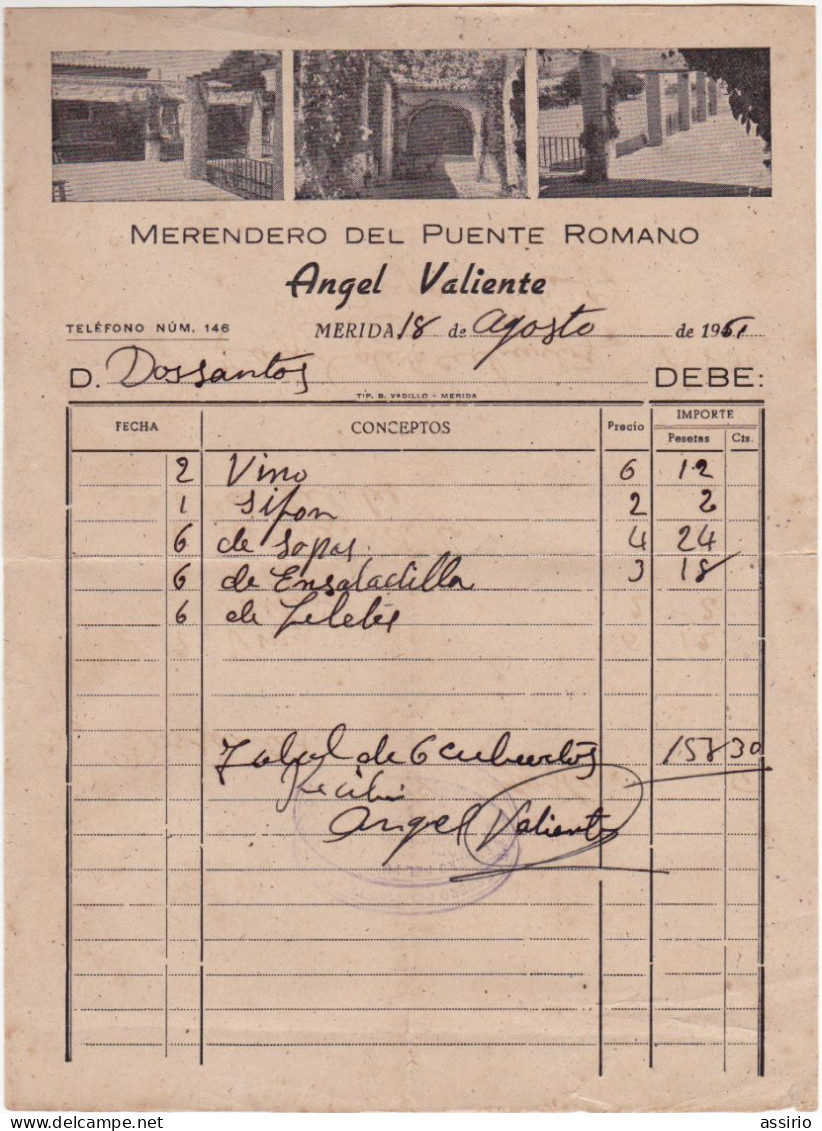 MERENDERO DEL PUENTE ROMANO
Angel Valiente
TELÉFONO NÚM. 146
MERIDA 18 de Agosto de 1961
D. Dossantos DEBE:
TIP. B. VADILLO - MERIDA
FECHA CONCEPTOS Precio IMPORTE
Pesetas Cts.
2 Vino 6 12
1 Sifon 2 2
6 de Sopas 4 24
6 de Ensaladilla 3 18
6 de
de 6 cubiertos 158 30
Recibi
Angel Valiente
assirio